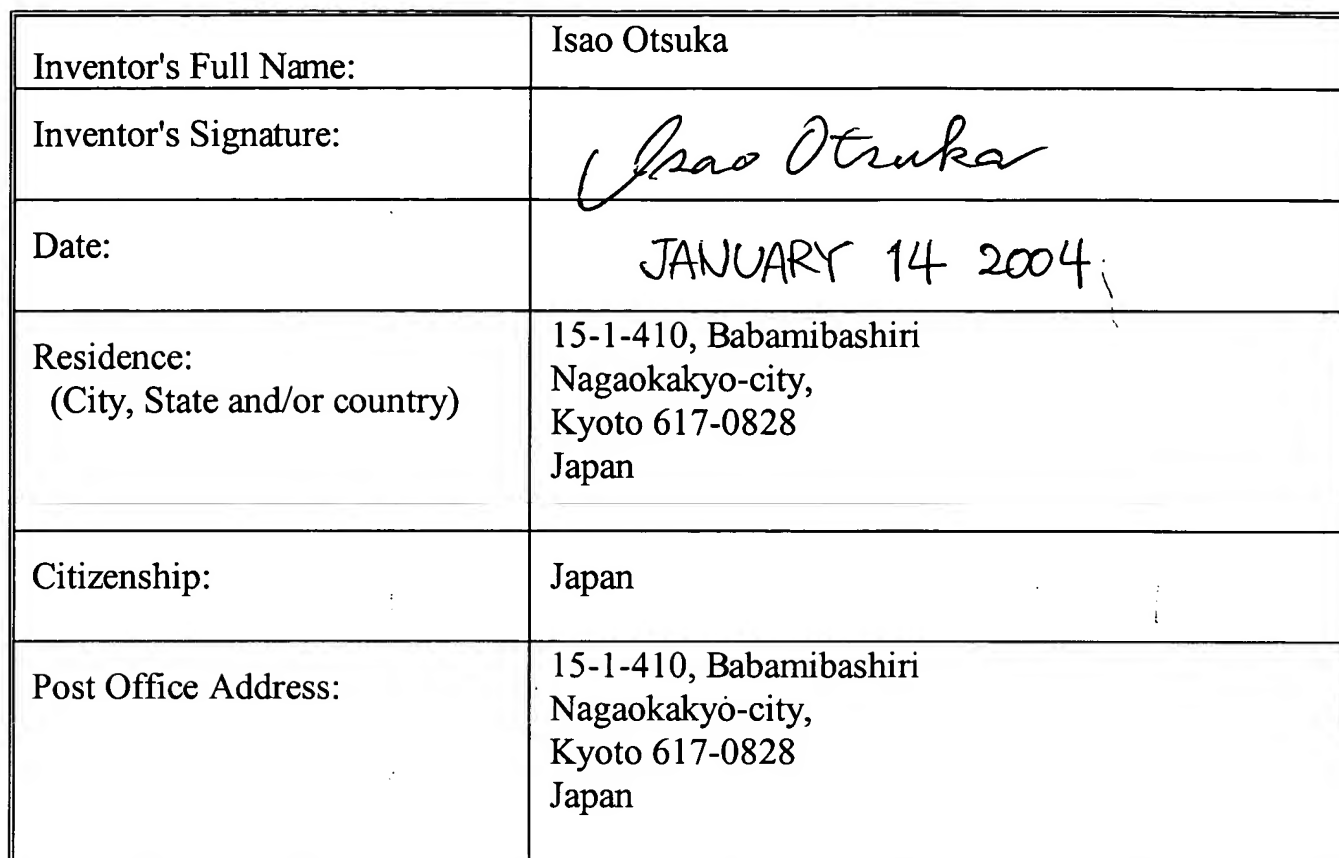 Inventor's Full Name:
Isao Otsuka
Inventor's Signature:
Isao Otsuka
Date:
JANUARY 14 2004
Residence:
(City, State and/or country)
15-1-410, Babamibashiri
Nagaokakyo-city,
Kyoto 617-0828
Japan
Citizenship:
Japan
Post Office Address:
15-1-410, Babamibashiri
Nagaokakyo-city,
Kyoto 617-0828
Japan